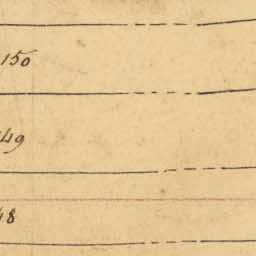 150
149
48